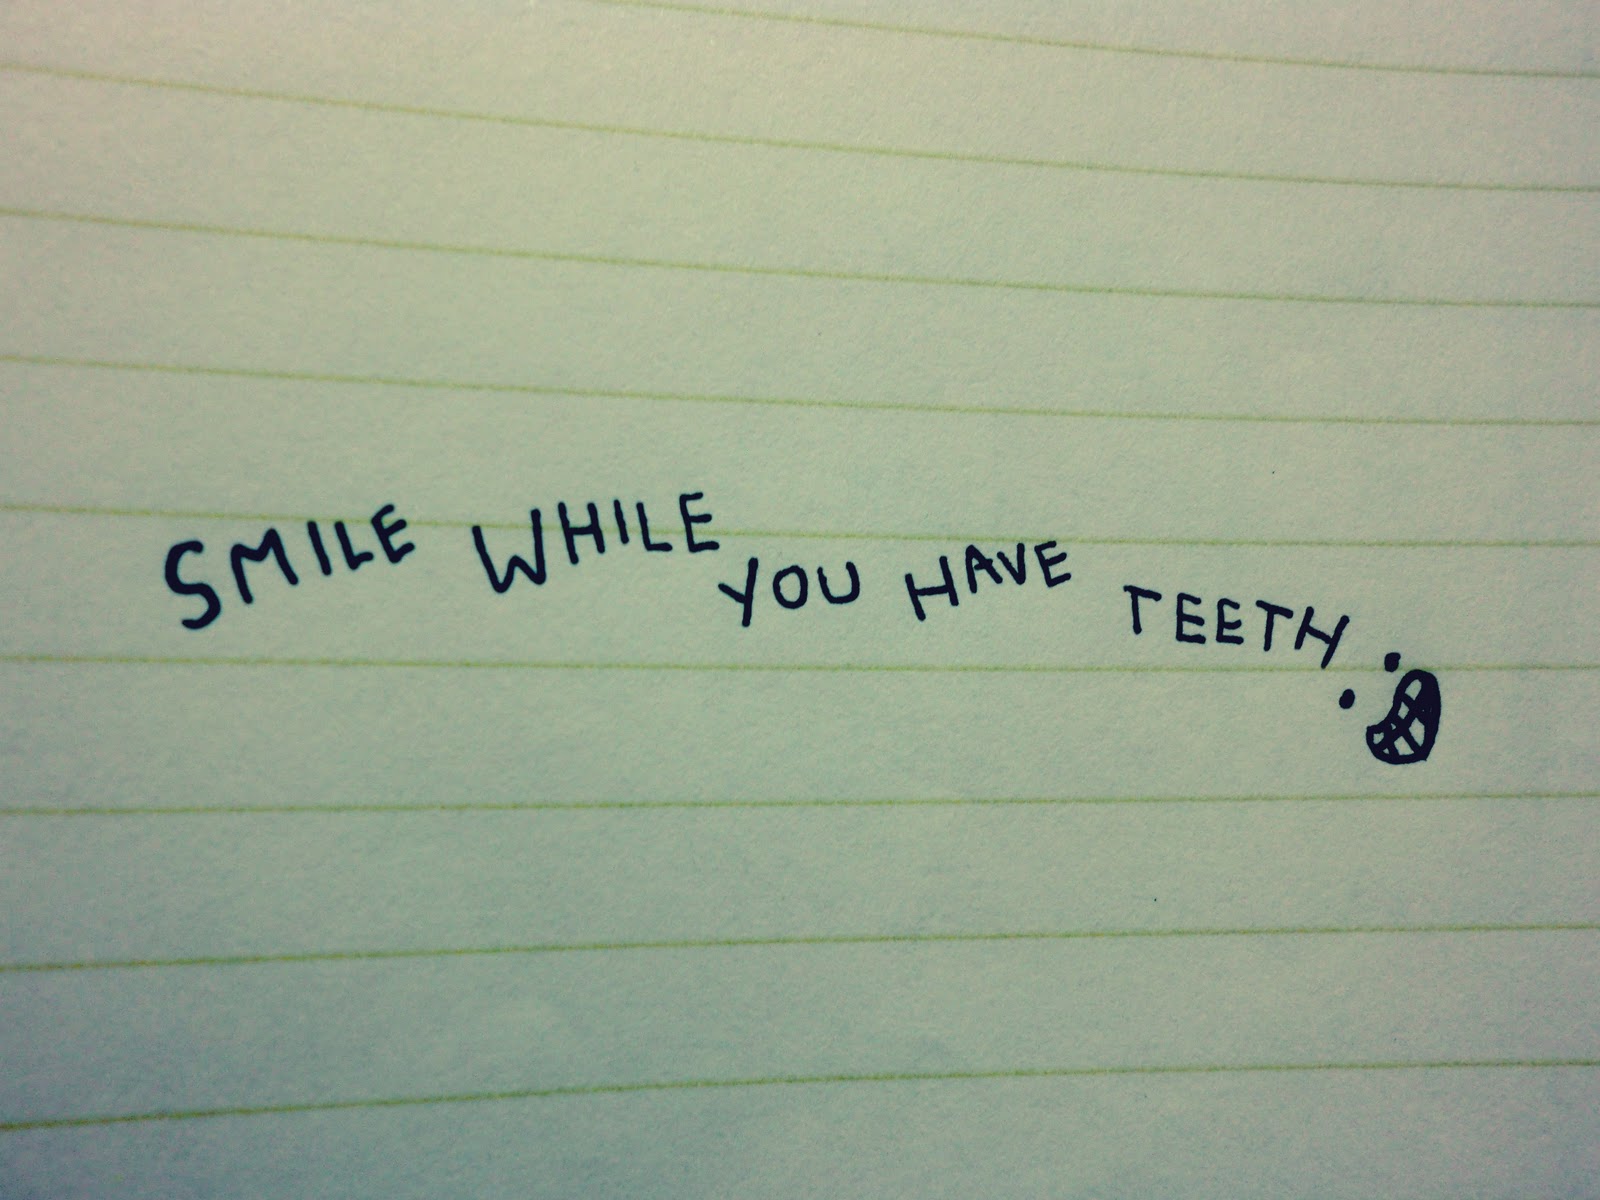 SMILE WHILE YOU HAVE TEETH.